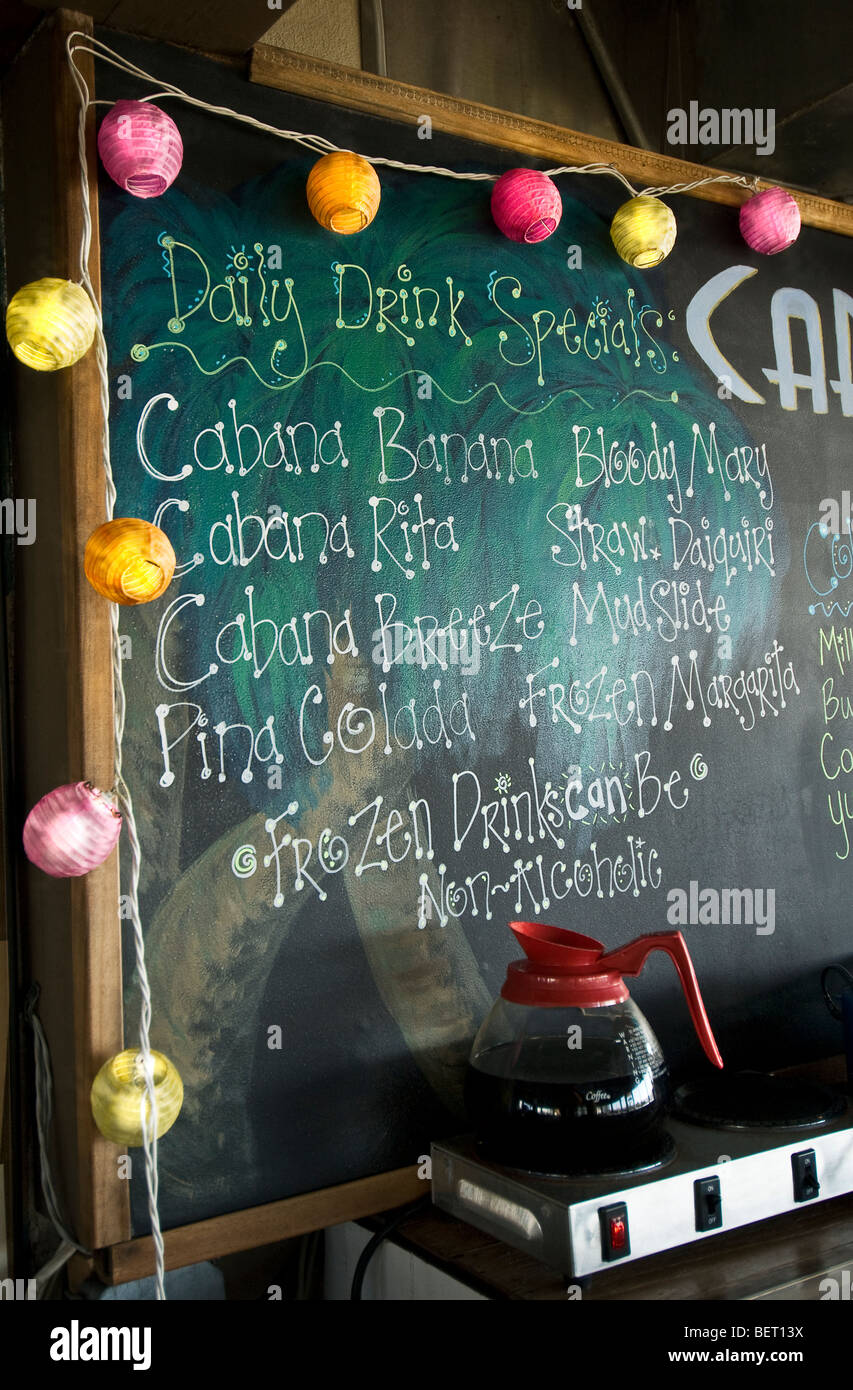 Daily Drink Specials
Cabana Banana
Cabana Rita
Cabana Breeze
Pina Colada
Bloody Mary
Straw. Daiquiri
MudSlide
Frozen Margarita
Frozen Drinks can Be
Non-Alcoholic
Coffee
ON
ON
a alamy stock photo
Image ID: BET13X
www.alamy.com